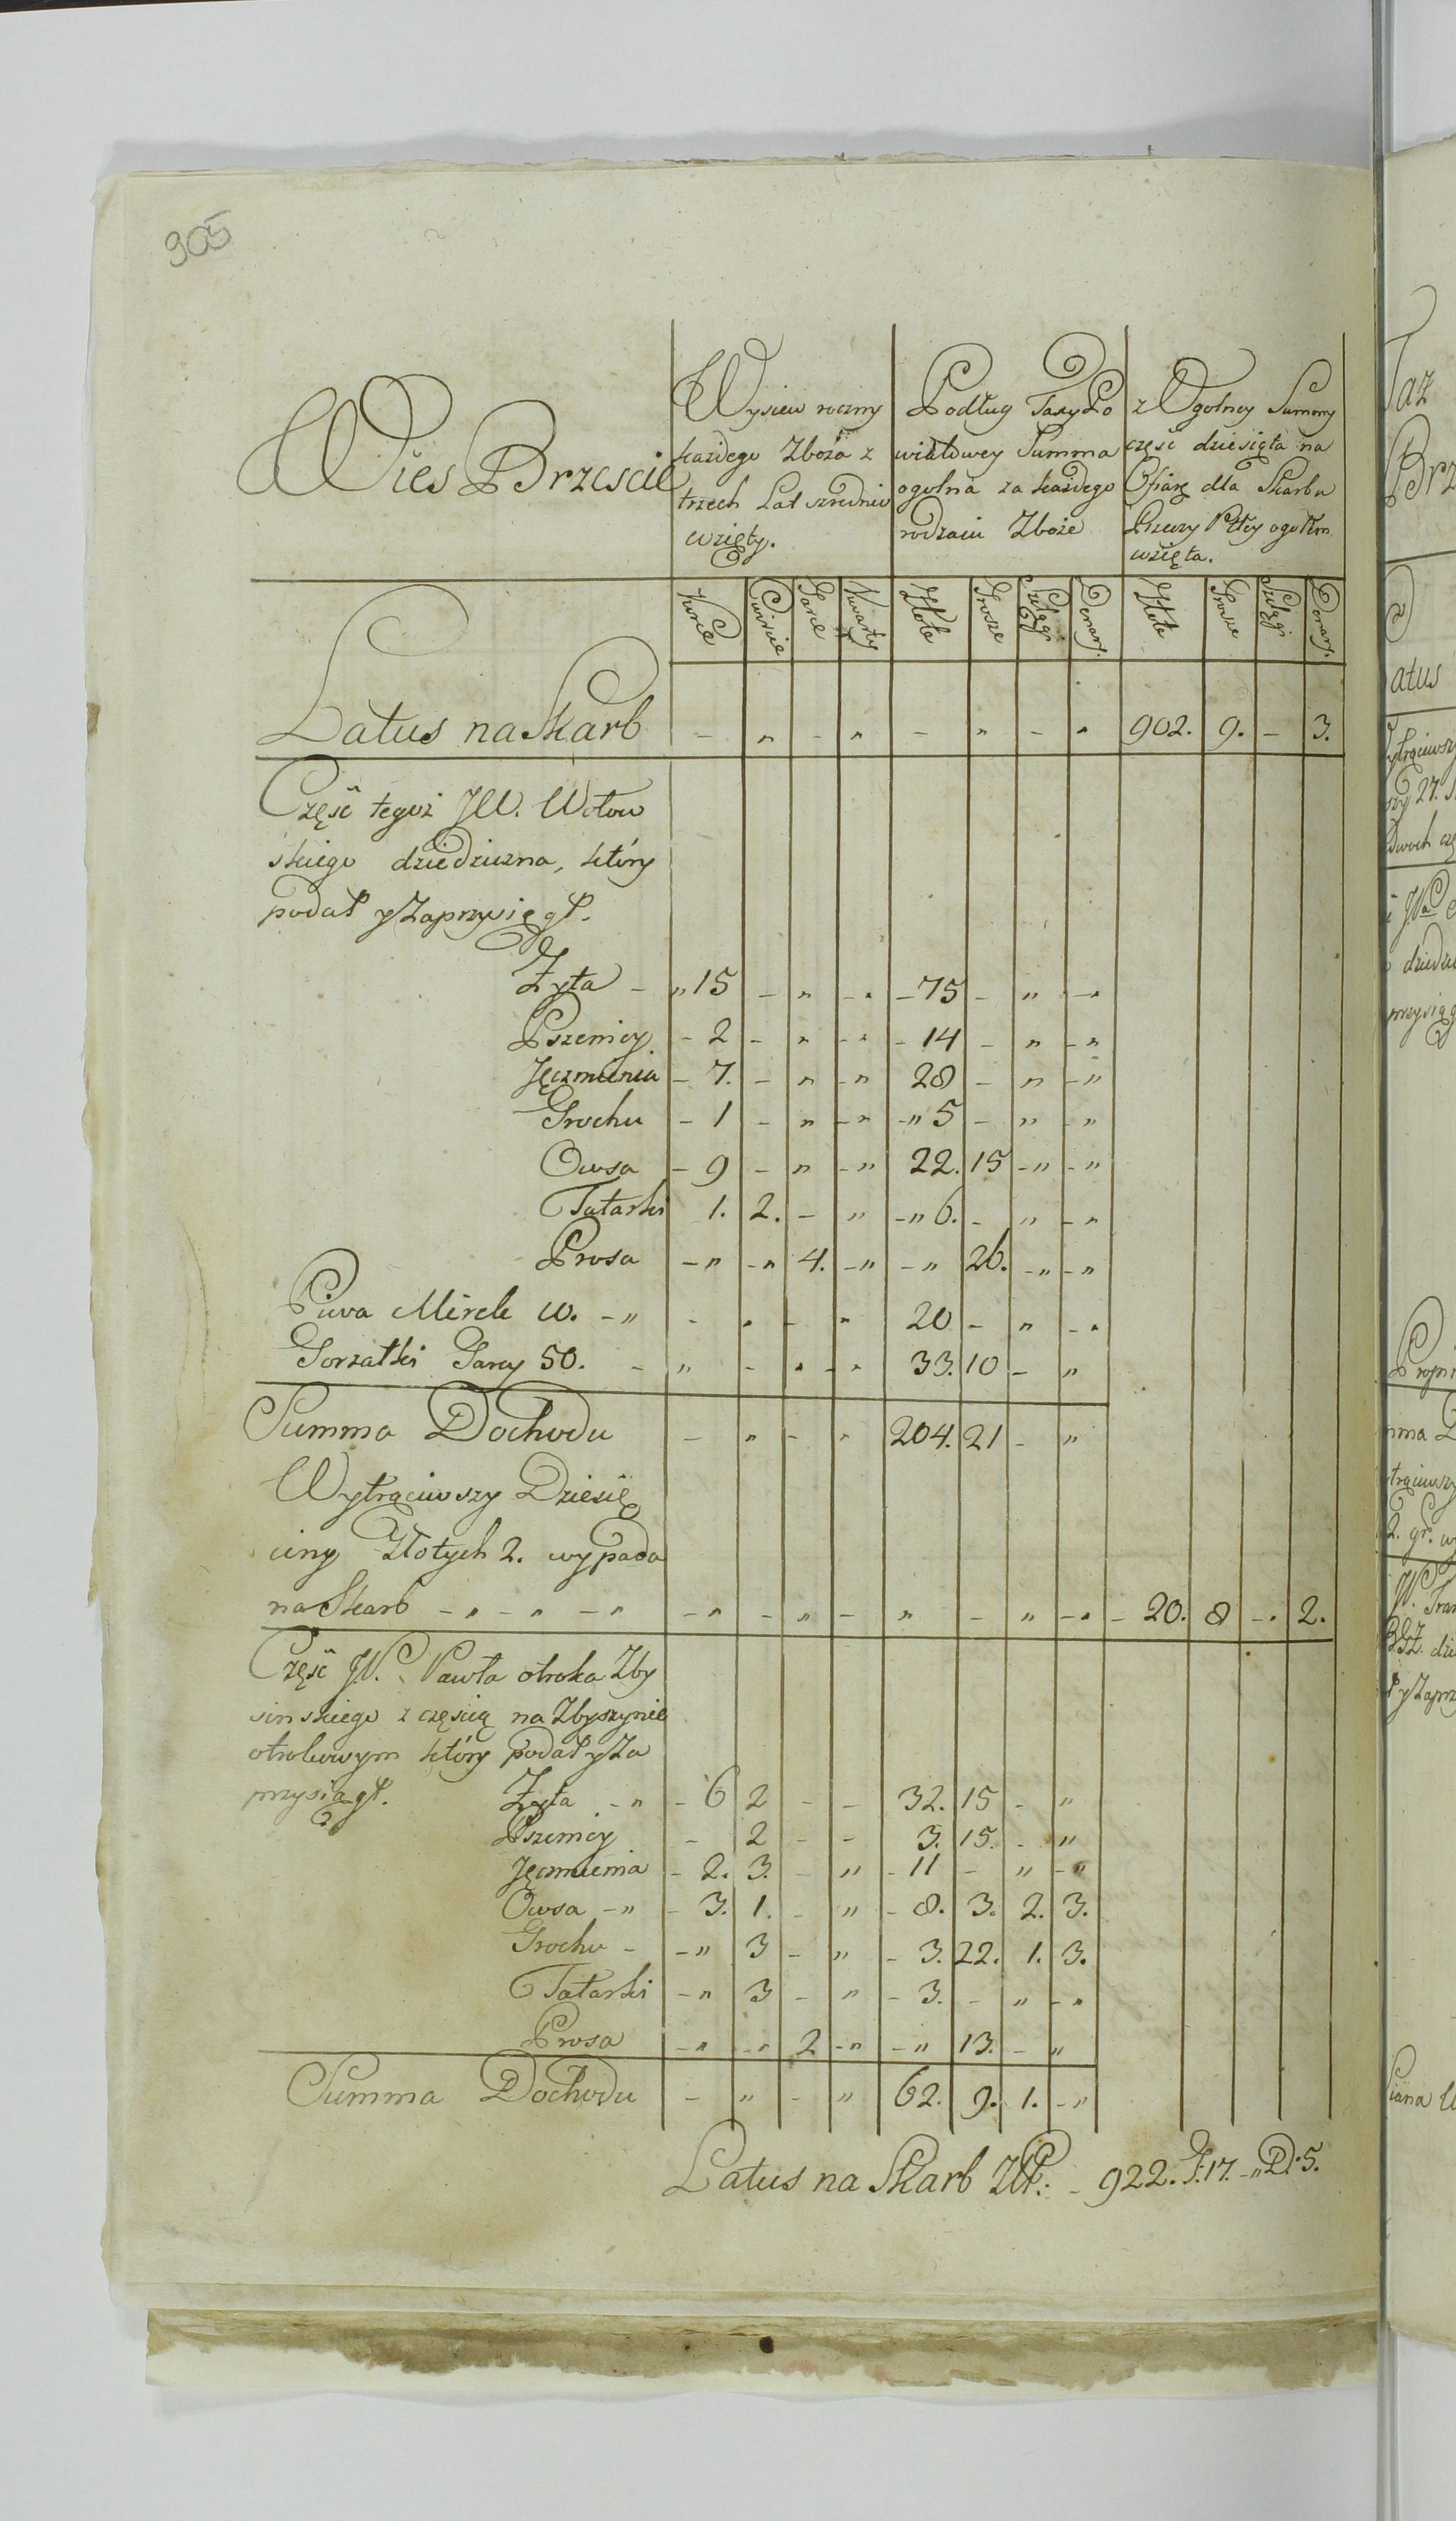 905
Wies Brzescie
Wysiew roczny
każdego Zboża z
trzech Lat srednio
wzięty.
Podług Taxy Po
wiatowey Summa
ogolna za każdego
rodzaiu Zboże
z Ogolney Summy
częsc dziesiąta na
Ofiarę dla Skarbu
Rzeczy Pltey ogołem
wzięta.
Korce Cwircie Garce Kwarty Złote Grosze Szelągi Denary. Złote Grosze Szelągi Denary.
Latus na Skarb - " - " - " - " 902. 9. - 3.
Częsć tegoż JW. Wołow
skiego dziedziczna, który
podał y Zaprzysiągł.
Zyta - " 15 - " - " - 75 - " - "
Pszenicy - 2 - " - " - 14 - " - "
Jęczmienia - 7. - " - " 28 - " - "
Grochu - 1 - " - " - " 5 - " - "
Owsa - 9 - " - " 22. 15 - " - "
Tatarki 1. 2. - " - " 6. - " - "
Prosa - " - " 4. - " - " 26. - " - "
Piwa Mirek 10. - " - " - " 20 - " - "
Gorzałki Garcy 50. - " - " - " 33. 10 - "
Summa Dochodu - " - " 204. 21 - "
Wytrąciwszy Dziesię
ciny Złotych 2. wypada
na Skarb - " - " - " - " - " - " - " - " - 20. 8 - " 2.
Częsć JW. Pawła otroka Zby
sinskiego z częscią na Zbyszynie
otrokowym który podał y Za
przysiągł. Zyta - " - 6 2 - - 32. 15 - "
Pszenicy - 2 - - 3. 15. - "
Jęczmienia - 2. 3. - " - 11 - " - "
Owsa - " - 3. 1. - " - 8. 3. 2. 3.
Grochu - - " 3 - " - 3. 22. 1. 3.
Tatarki - " 3 - " - 3. - " - "
Prosa - " - " 2 - " - " 13. - "
Summa Dochodu - " - " 62. 9. 1. - "
Latus na Skarb Złt: - 922. G: 17. - " D: 5.